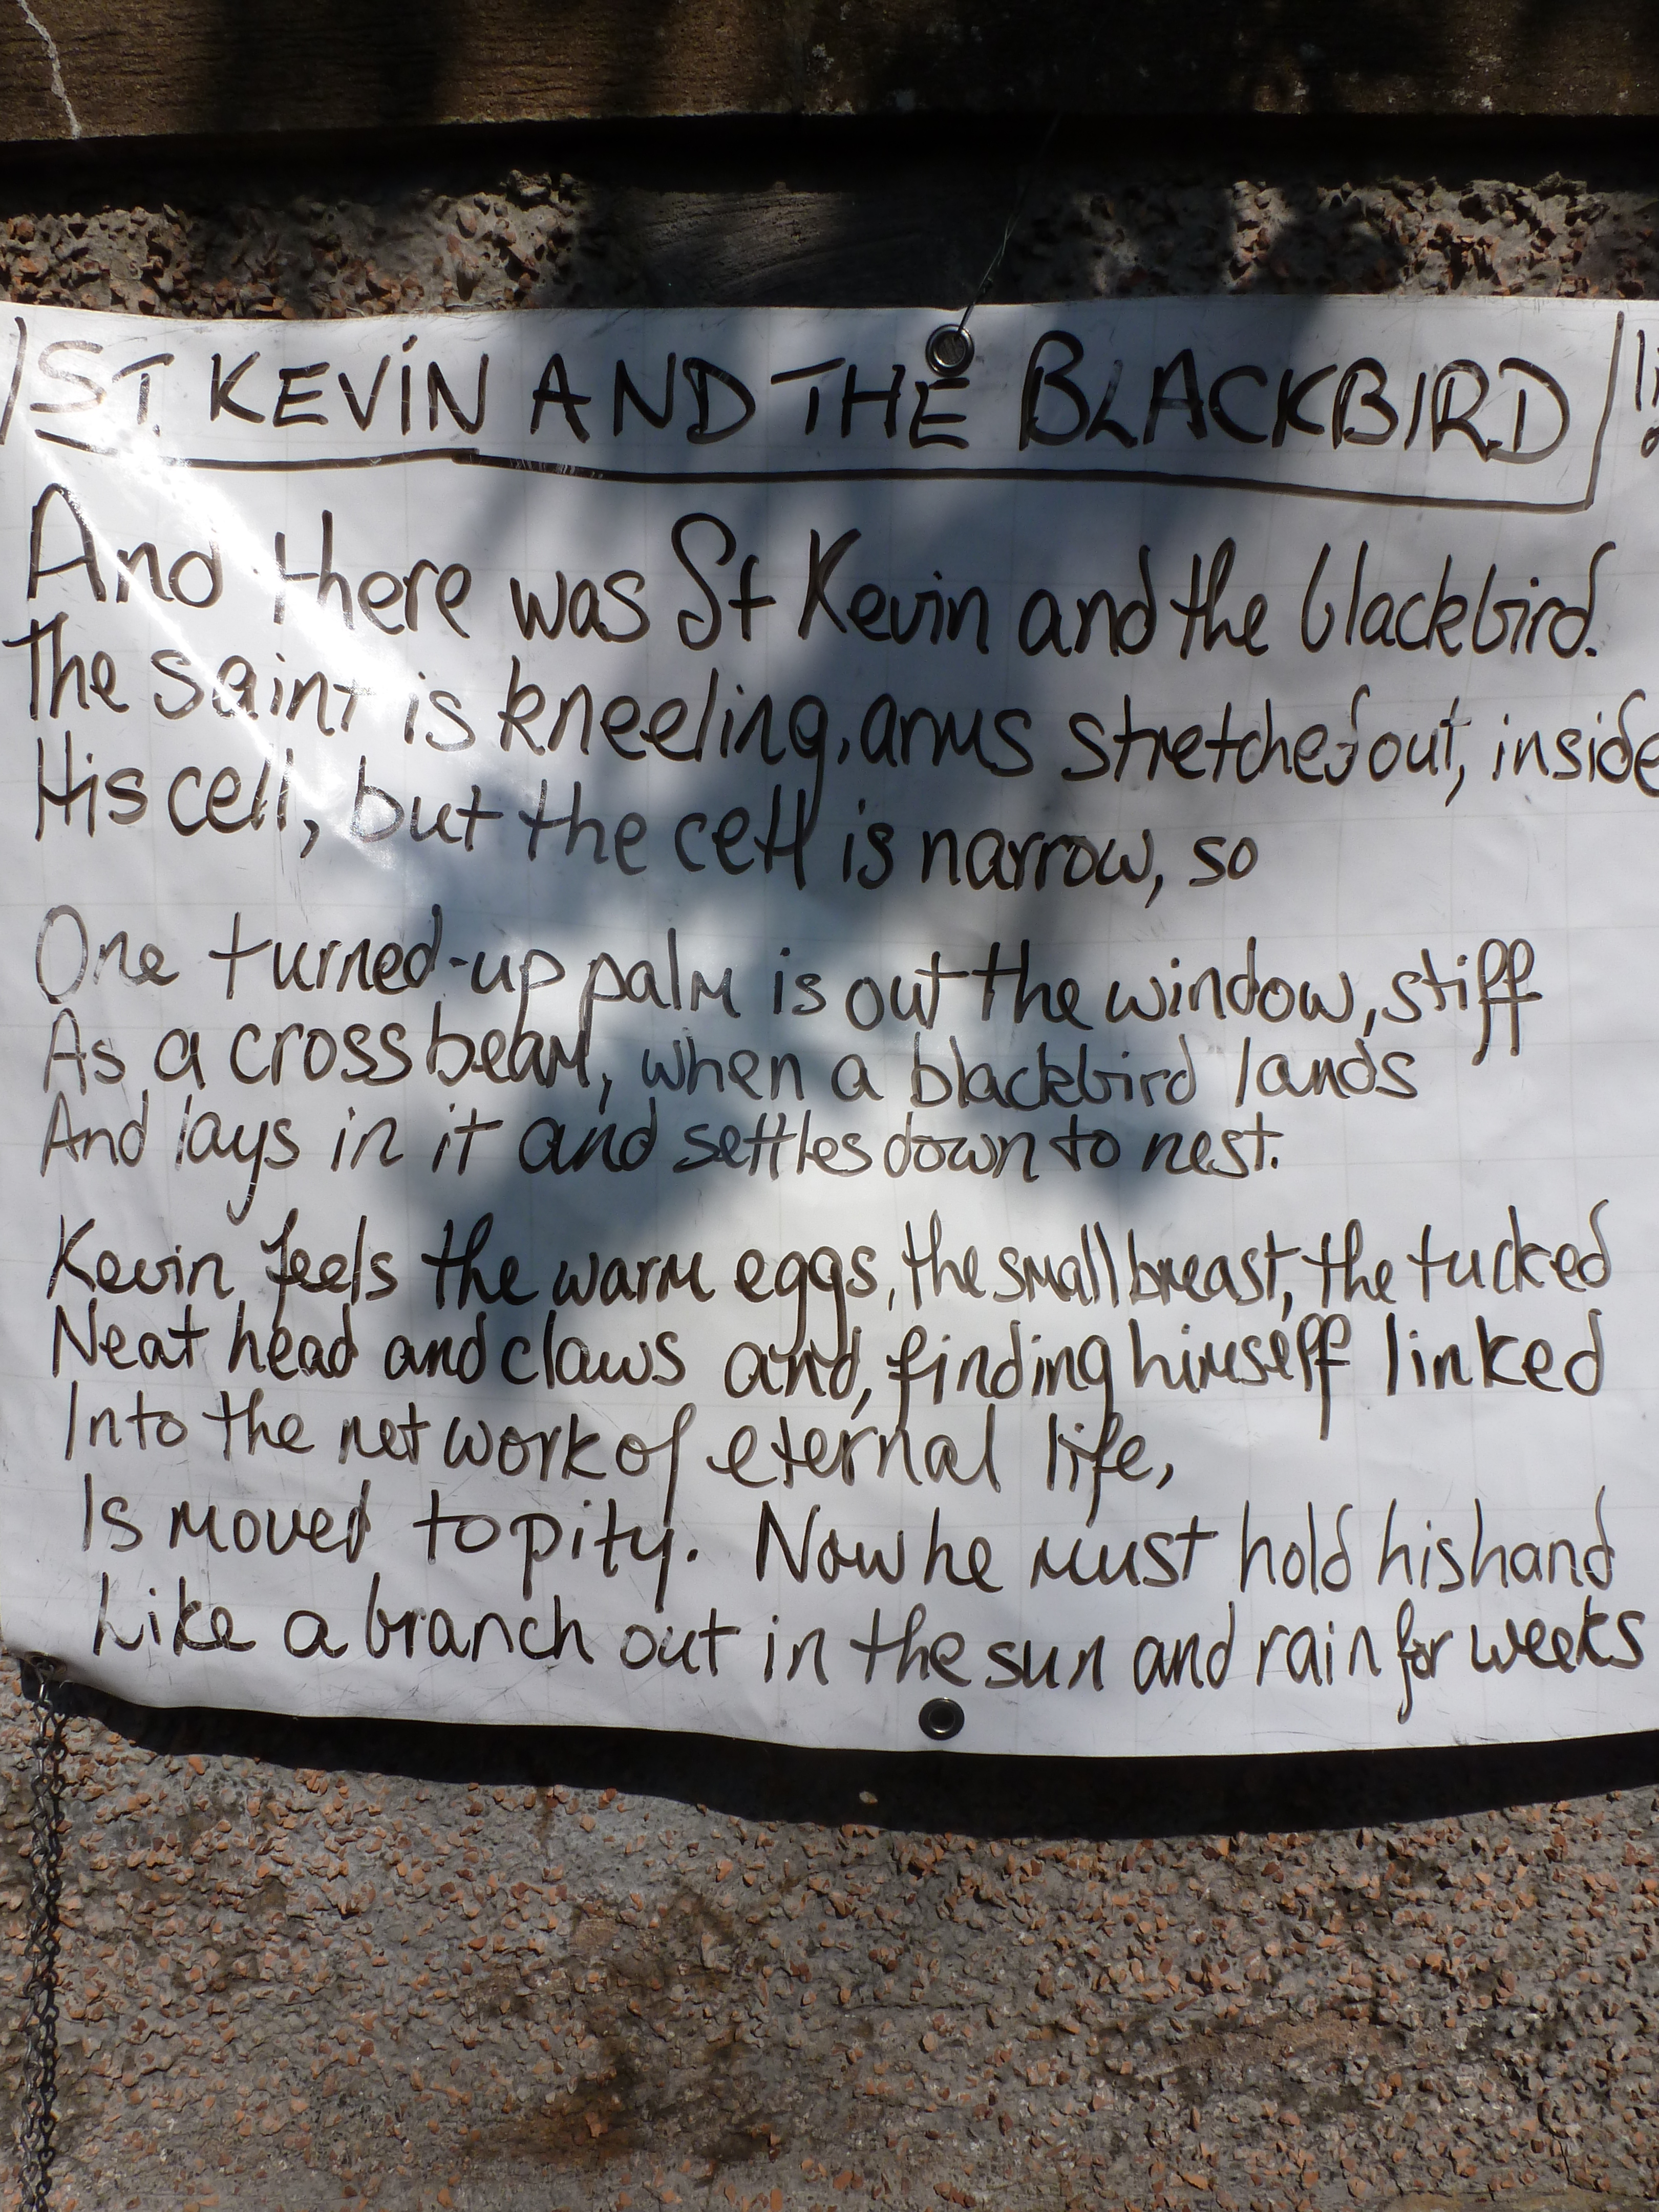 ST. KEVIN AND THE BLACKBIRD
And there was St Kevin and the blackbird.
The saint is kneeling, arms stretched out, inside
His cell, but the cell is narrow, so
One turned-up palm is out the window, stiff
As a crossbeam, when a blackbird lands
And lays in it and settles down to nest.
Kevin feels the warm eggs, the small breast, the tucked
Neat head and claws and, finding himself linked
Into the network of eternal life,
Is moved to pity. Now he must hold his hand
Like a branch out in the sun and rain for weeks